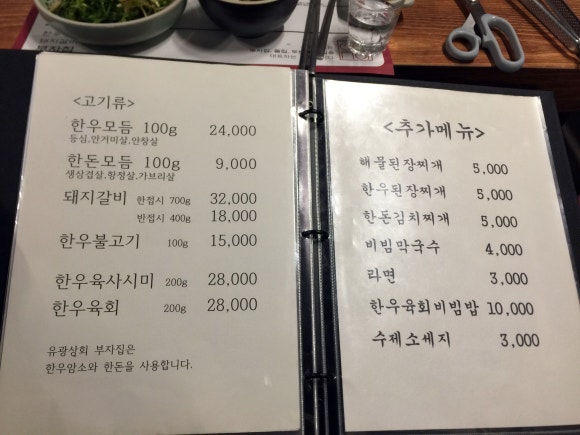 <고기류>
한우모듬 100g 24,000
등심,안거미살,안창살
한돈모듬 100g 9,000
생삼겹살,항정살,가브리살
돼지갈비 한접시 700g 32,000
반접시 400g 18,000
한우불고기 100g 15,000
한우육사시미 200g 28,000
한우육회 200g 28,000
유광상회 부자집은
한우암소와 한돈을 사용합니다.
<추가메뉴>
해물된장찌개 5,000
한우된장찌개 5,000
한돈김치찌개 5,000
비빔막국수 4,000
라면 3,000
한우육회비빔밥 10,000
수제소세지 3,000